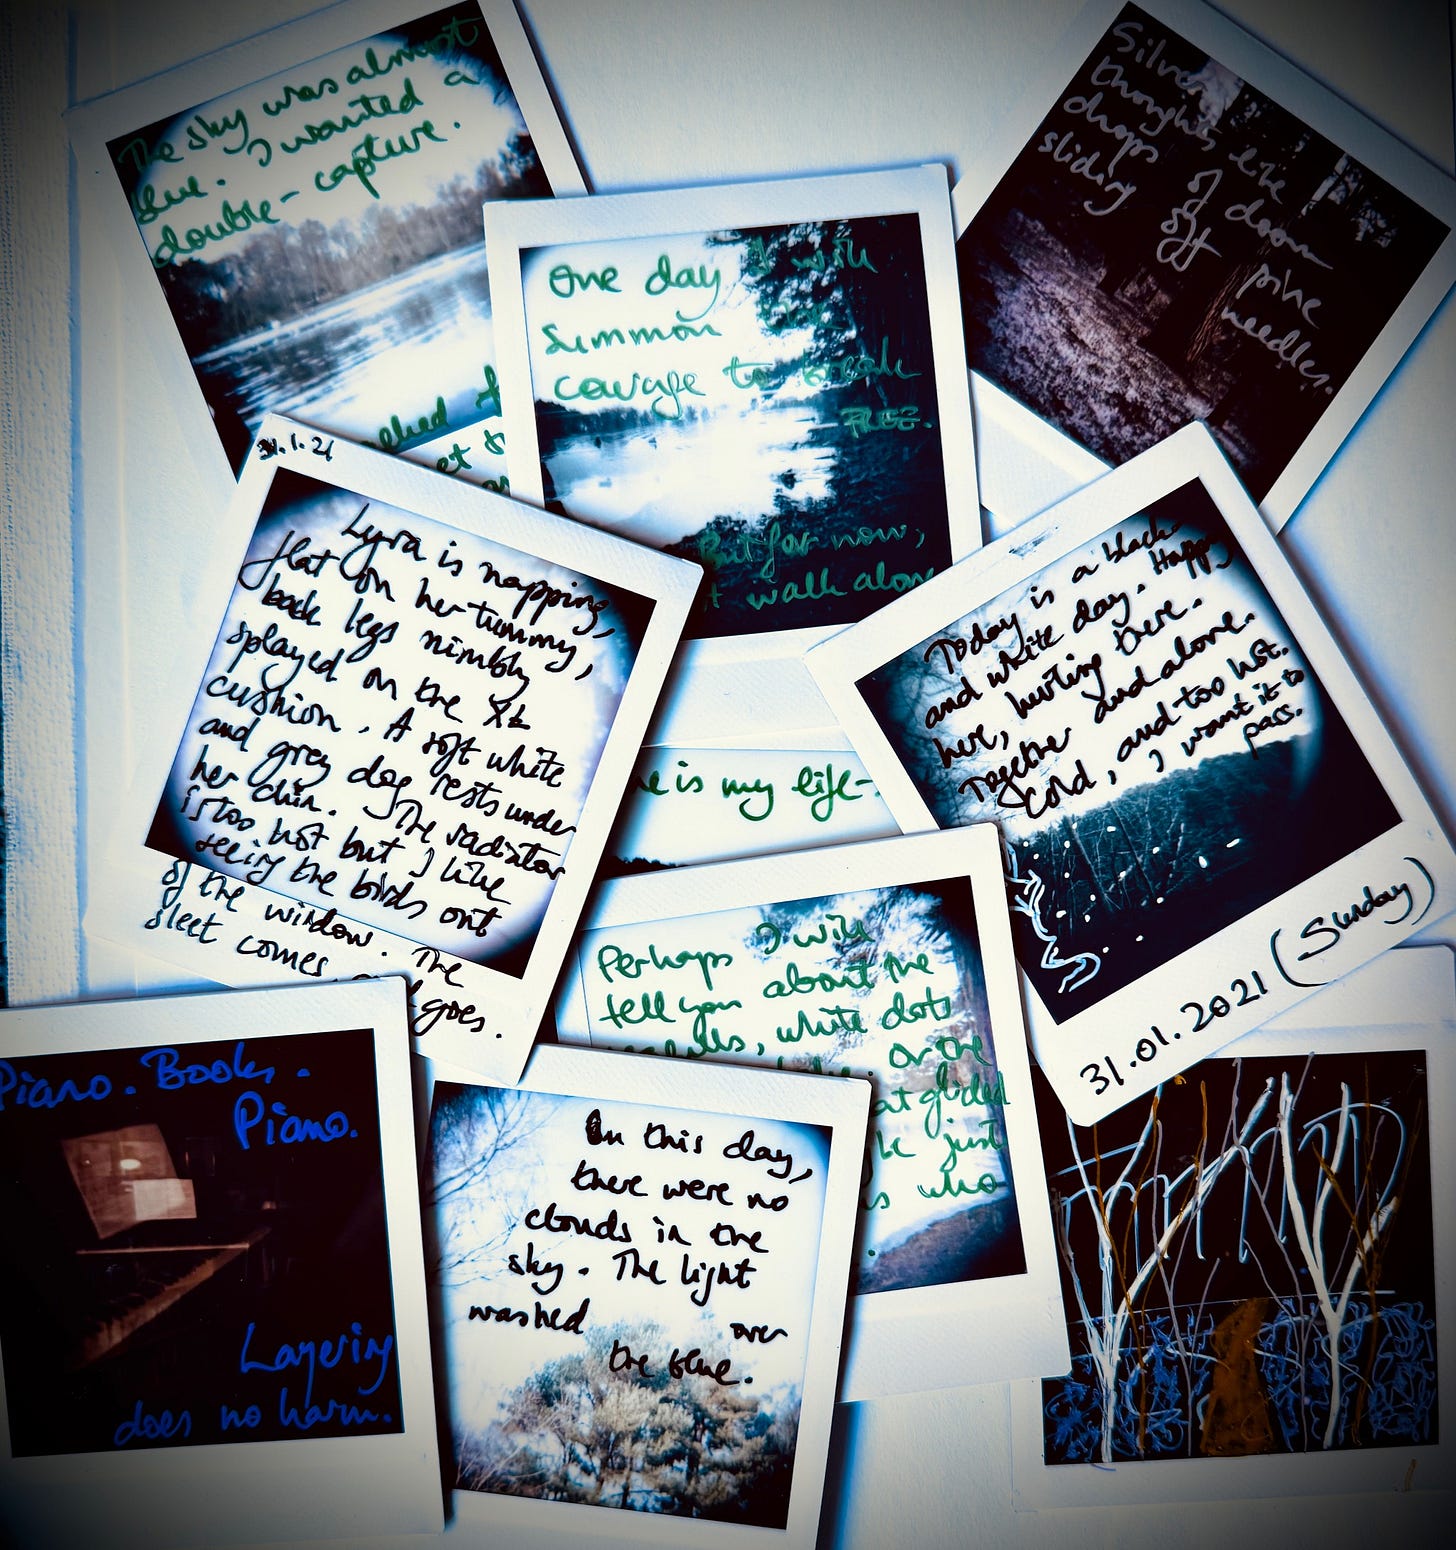 The sky was almost
blue. I wanted a
double-capture.
One day I will
summon
courage to break
FREE.
But for now,
I walk alone
Silver
thoughts like
drops of doom
sliding off pine
needles.
31.1.21
Lyra is napping,
flat on her tummy,
back legs nimbly
splayed on the XL
cushion. A soft white
and grey dog rests under
her chin. The radiator
is too hot but I like
seeing the birds out
of the window. The
sleet comes goes.
Today is a black
and white day. Happy
here, hurting there.
Together and alone.
Cold, and too hot.
I want it to
pass.
31.01.2021 (Sunday)
is my life-
Perhaps I will
tell you about the
white dots
or the
glided
just
who
Piano. Books.
Piano.
Layering
does no harm.
On this day,
there were no
clouds in the
sky. The light
washed over
the blue.